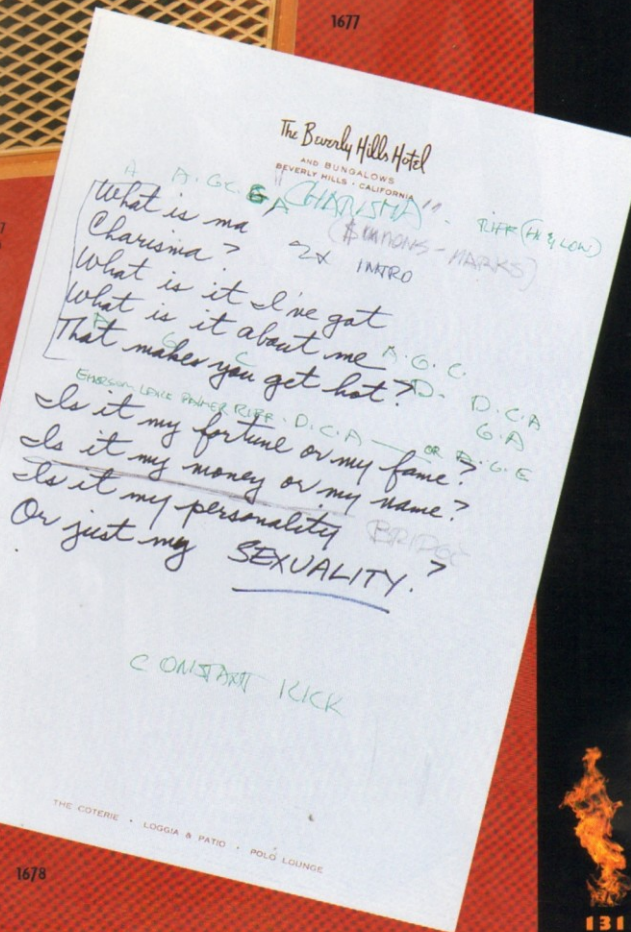 1677
The Beverly Hills Hotel
AND BUNGALOWS
BEVERLY HILLS • CALIFORNIA
A A. GC. G A "CHARISMA". RIFF (HI & LOW)
(SIMMONS - MARKS)
What is ma
Charisma? 2x INTRO
What is it I've got
What is it about me A. G. C.
G C D. D. C. A
That makes you get hot? G. A
EMERSON LAKE PALMER RIFF. D. C. A — OR A. G. E
Is it my fortune or my fame?
Is it my money or my name?
Is it my personality BRIDGE
Or just my SEXUALITY.?
CONSTANT KICK
THE COTERIE • LOGGIA & PATIO • POLO LOUNGE
1678
131